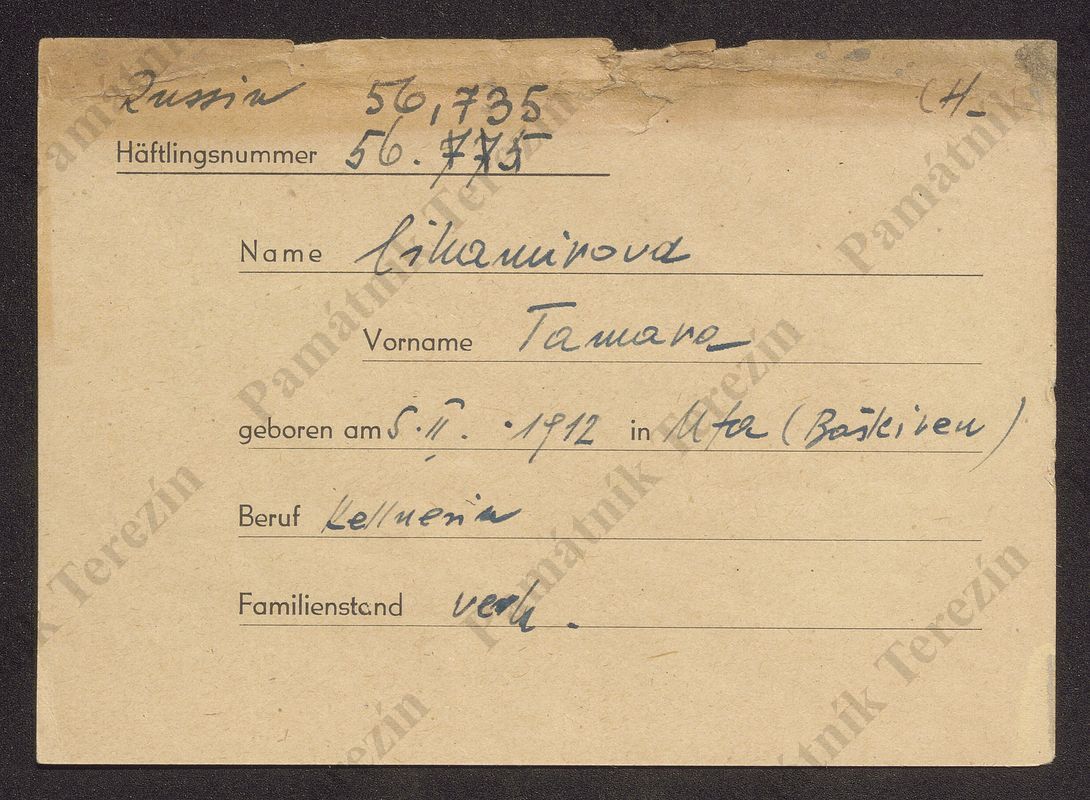 Russin 56,735 (H-
Häftlingsnummer 56.775
Name Cikamirova
Vorname Tamara
geboren am 5. II. 1912 in Ufa (Baškiren)
Beruf Kellnerin
Familienstand verh.
Památník Terezín